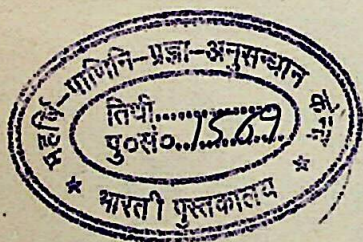 महर्षि-पाणिनि-प्रज्ञा-अनुसन्धान
तिथी..............
पु०सं०..1569......
* भारती पुस्तकालय *